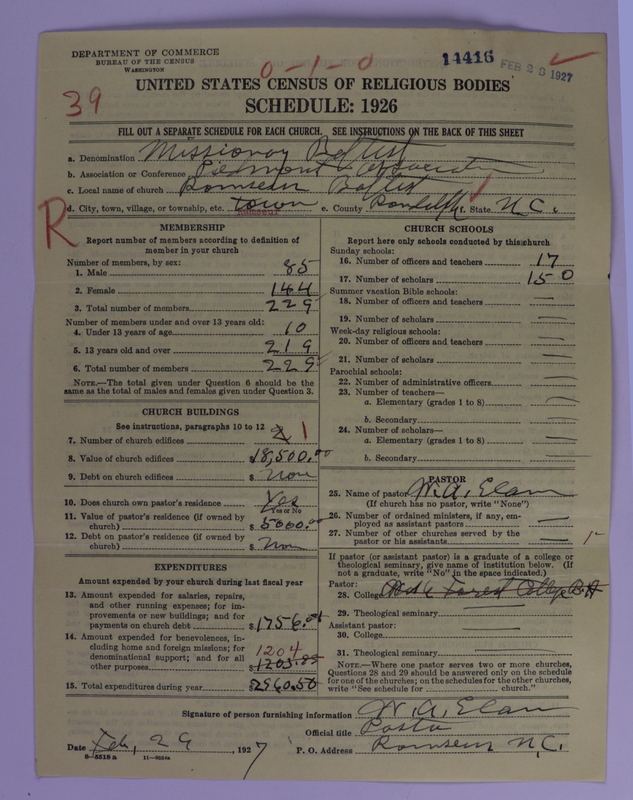 DEPARTMENT OF COMMERCE
BUREAU OF THE CENSUS
WASHINGTON
14416
FEB 28 1927
0-1-0
39
UNITED STATES CENSUS OF RELIGIOUS BODIES
SCHEDULE: 1926
FILL OUT A SEPARATE SCHEDULE FOR EACH CHURCH. SEE INSTRUCTIONS ON THE BACK OF THIS SHEET
a. Denomination Missionary Baptist
b. Association or Conference Piedmont Association
c. Local name of church Ramseur Baptist
d. City, town, village, or township, etc. town e. County Randolph f. State N.C.
Ramseur
R
MEMBERSHIP
Report number of members according to definition of member in your church
Number of members, by sex:
1. Male 85
2. Female 144
3. Total number of members 229
Number of members under and over 13 years old:
4. Under 13 years of age 10
5. 13 years old and over 219
6. Total number of members 229
NOTE.—The total given under Question 6 should be the same as the total of males and females given under Question 3.
CHURCH BUILDINGS
See instructions, paragraphs 10 to 12
7. Number of church edifices 2 1
8. Value of church edifices $18,500.00
9. Debt on church edifices $ None
10. Does church own pastor's residence Yes
Yes or No
11. Value of pastor's residence (if owned by church) $5000.00
12. Debt on pastor's residence (if owned by church) $ None
EXPENDITURES
Amount expended by your church during last fiscal year
13. Amount expended for salaries, repairs, and other running expenses; for improvements or new buildings; and for payments on church debt $1756.
14. Amount expended for benevolences, including home and foreign missions; for denominational support; and for all other purposes 1204 $1203.
15. Total expenditures during year $2960.50
CHURCH SCHOOLS
Report here only schools conducted by this church
Sunday schools:
16. Number of officers and teachers 17
17. Number of scholars 150
Summer vacation Bible schools:
18. Number of officers and teachers —
19. Number of scholars —
Week-day religious schools:
20. Number of officers and teachers —
21. Number of scholars —
Parochial schools:
22. Number of administrative officers —
23. Number of teachers—
a. Elementary (grades 1 to 8) —
b. Secondary —
24. Number of scholars—
a. Elementary (grades 1 to 8) —
b. Secondary —
PASTOR
25. Name of pastor W. A. Elam
(If church has no pastor, write "None")
26. Number of ordained ministers, if any, employed as assistant pastors —
27. Number of other churches served by the pastor or his assistants —
If pastor (or assistant pastor) is a graduate of a college or theological seminary, give name of institution below. (If not a graduate, write "No" in the space indicated.)
Pastor:
28. College Wake Forest College B.A.
29. Theological seminary —
Assistant pastor:
30. College —
31. Theological seminary —
NOTE.—Where one pastor serves two or more churches, Questions 28 and 29 should be answered only on the schedule for one of the churches; on the schedules for the other churches, write "See schedule for ........ church."
Signature of person furnishing information W. A. Elam
Official title Pastor
Date Feb, 29, 1927 P. O. Address Ramseur N.C.